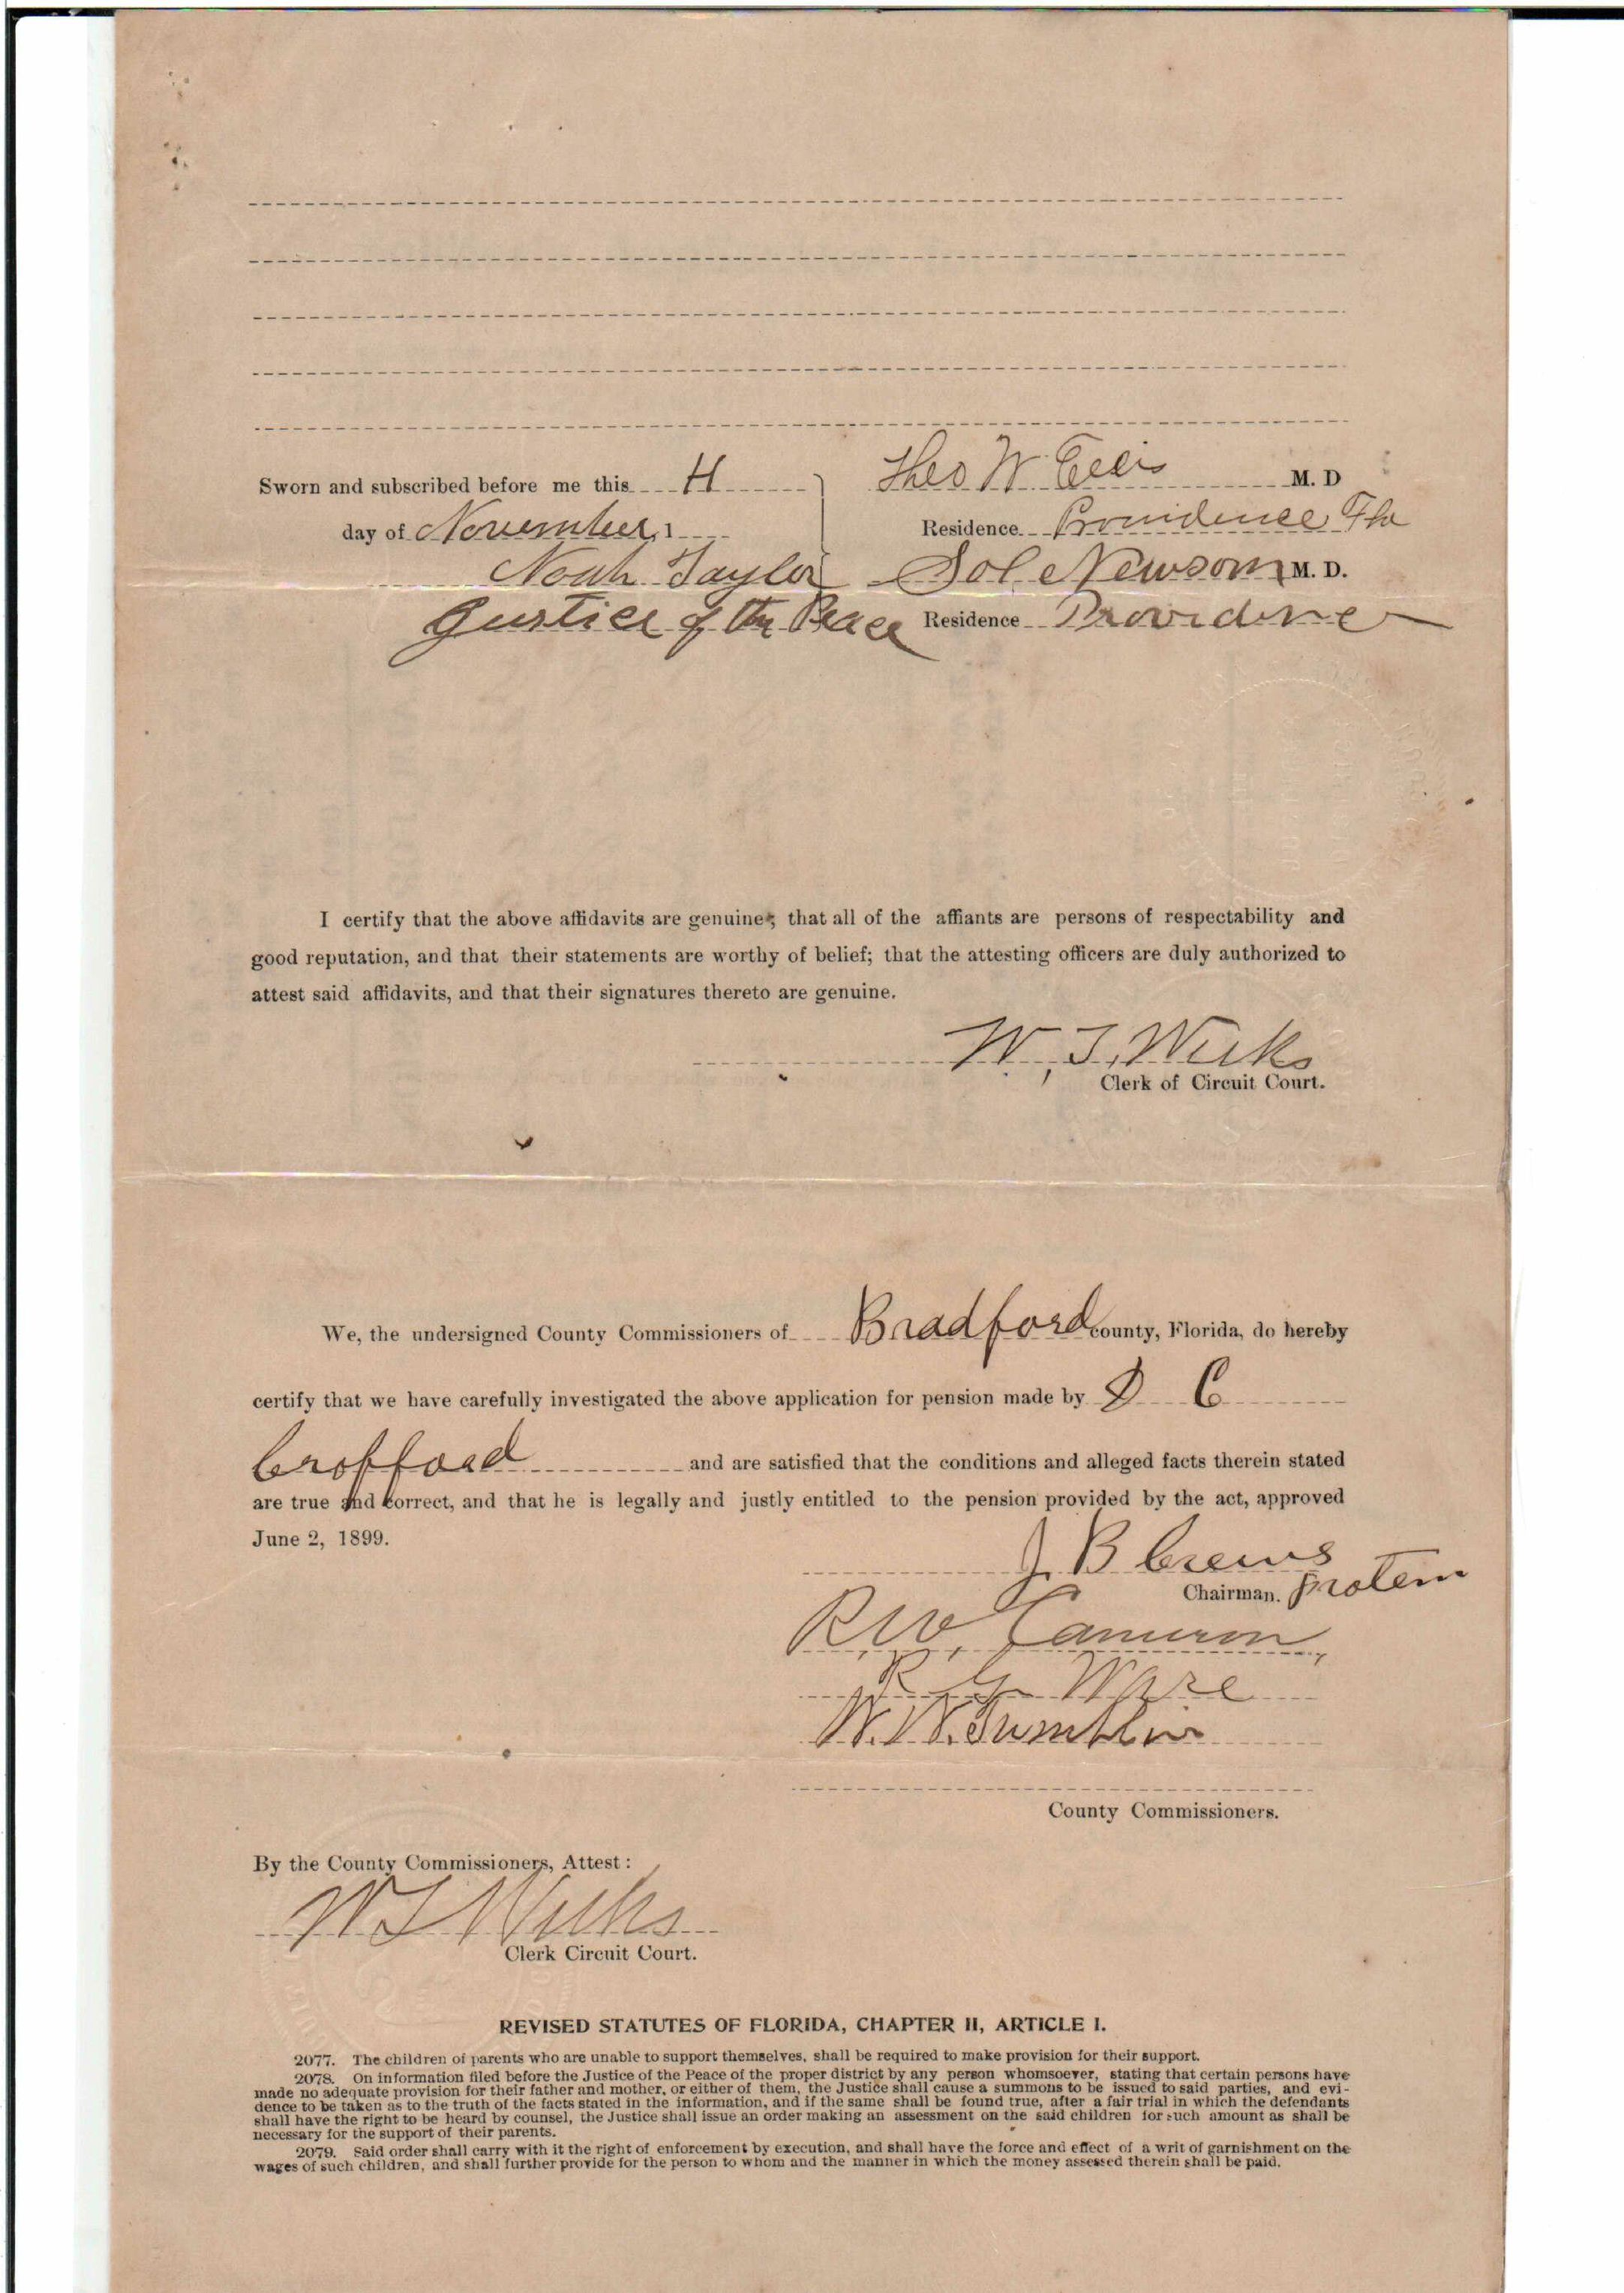 Sworn and subscribed before me this 4
Theo W Ellis M. D
day of November, 1
Residence Providence Fla
Noah Taylor
Sol Newsom M. D.
Justice of the Peace
Residence Providence
I certify that the above affidavits are genuine; that all of the affiants are persons of respectability and
good reputation, and that their statements are worthy of belief; that the attesting officers are duly authorized to
attest said affidavits, and that their signatures thereto are genuine.
W. T. Weeks
Clerk of Circuit Court.
We, the undersigned County Commissioners of Bradford county, Florida, do hereby
certify that we have carefully investigated the above application for pension made by D C
Crofford and are satisfied that the conditions and alleged facts therein stated
are true and correct, and that he is legally and justly entitled to the pension provided by the act, approved
June 2, 1899.
J. B Crews
Chairman. protem
R. W. Cameron,
R G Ware
W. W. Tumblin
County Commissioners.
By the County Commissioners, Attest:
W T Weeks
Clerk Circuit Court.
REVISED STATUTES OF FLORIDA, CHAPTER II, ARTICLE I.
2077. The children of parents who are unable to support themselves, shall be required to make provision for their support.
2078. On information filed before the Justice of the Peace of the proper district by any person whomsoever, stating that certain persons have
made no adequate provision for their father and mother, or either of them, the Justice shall cause a summons to be issued to said parties, and evi-
dence to be taken as to the truth of the facts stated in the information, and if the same shall be found true, after a fair trial in which the defendants
shall have the right to be heard by counsel, the Justice shall issue an order making an assessment on the said children for such amount as shall be
necessary for the support of their parents.
2079. Said order shall carry with it the right of enforcement by execution, and shall have the force and effect of a writ of garnishment on the
wages of such children, and shall further provide for the person to whom and the manner in which the money assessed therein shall be paid.